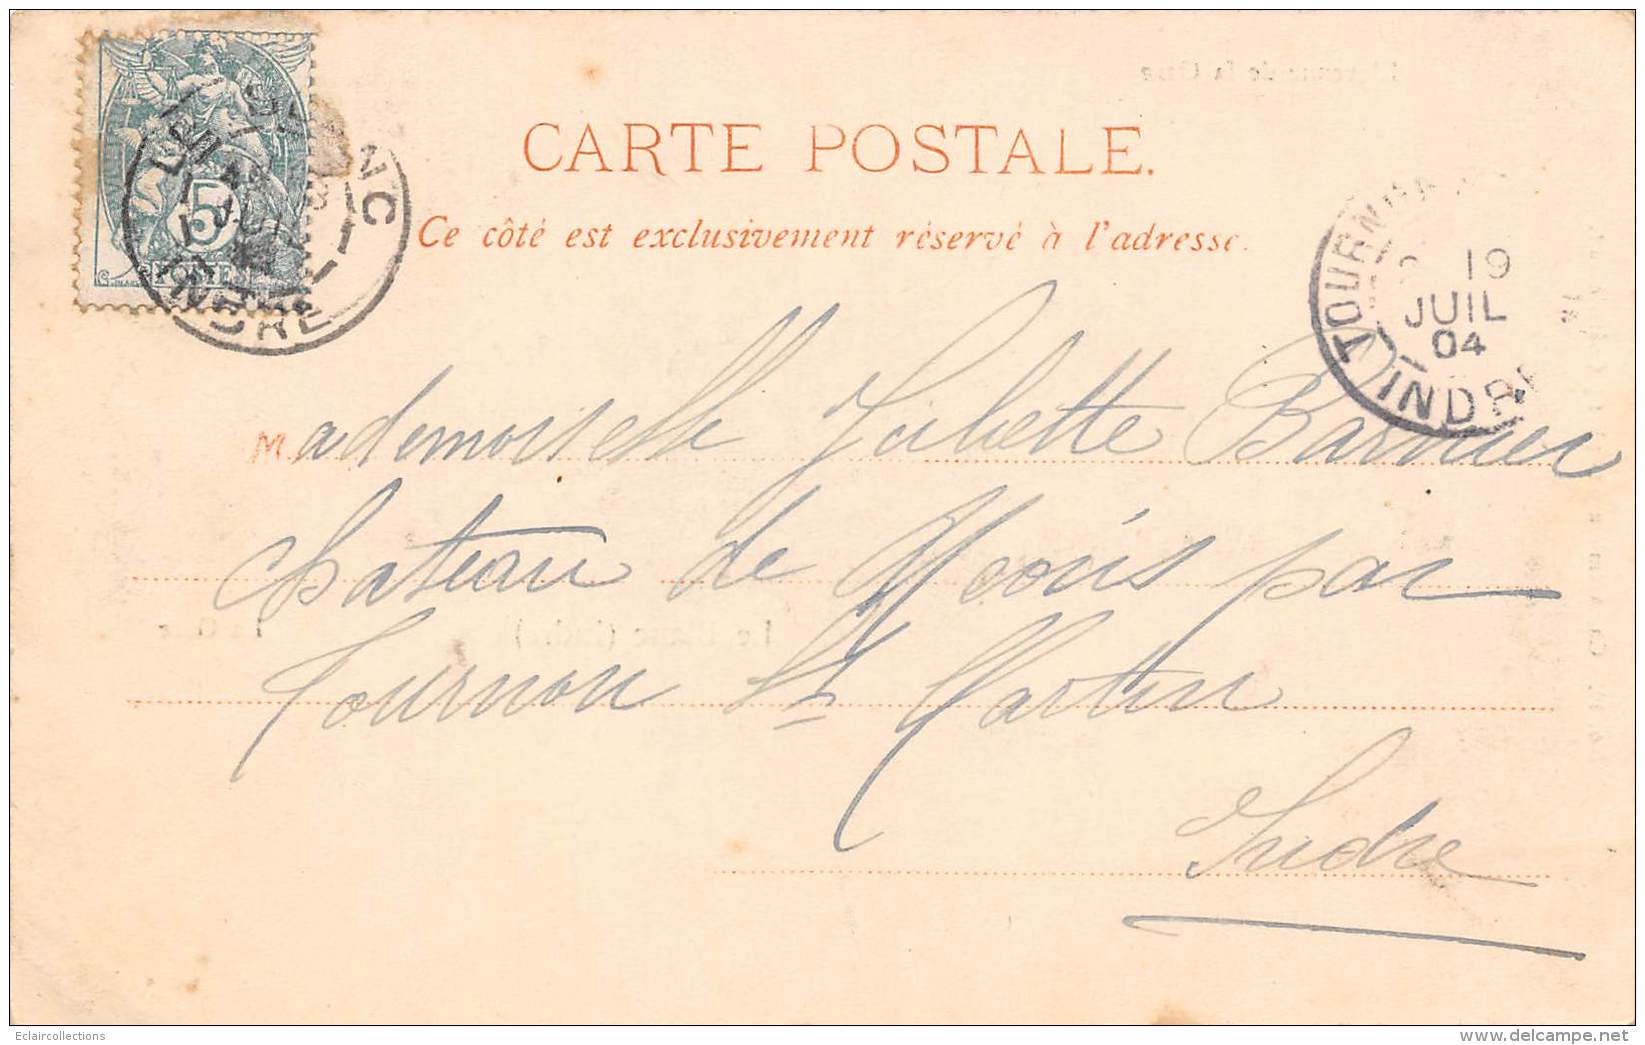 CARTE POSTALE.
Ce côté est exclusivement réservé à l'adresse.
5
POSTES
LE BLANC
INDRE
TOURNON
19
JUIL
04
INDRE
Mademoiselle Juliette Barnier
Château de par
Tournon St Martin
Indre
Eclaircollections
www.delcampe.net